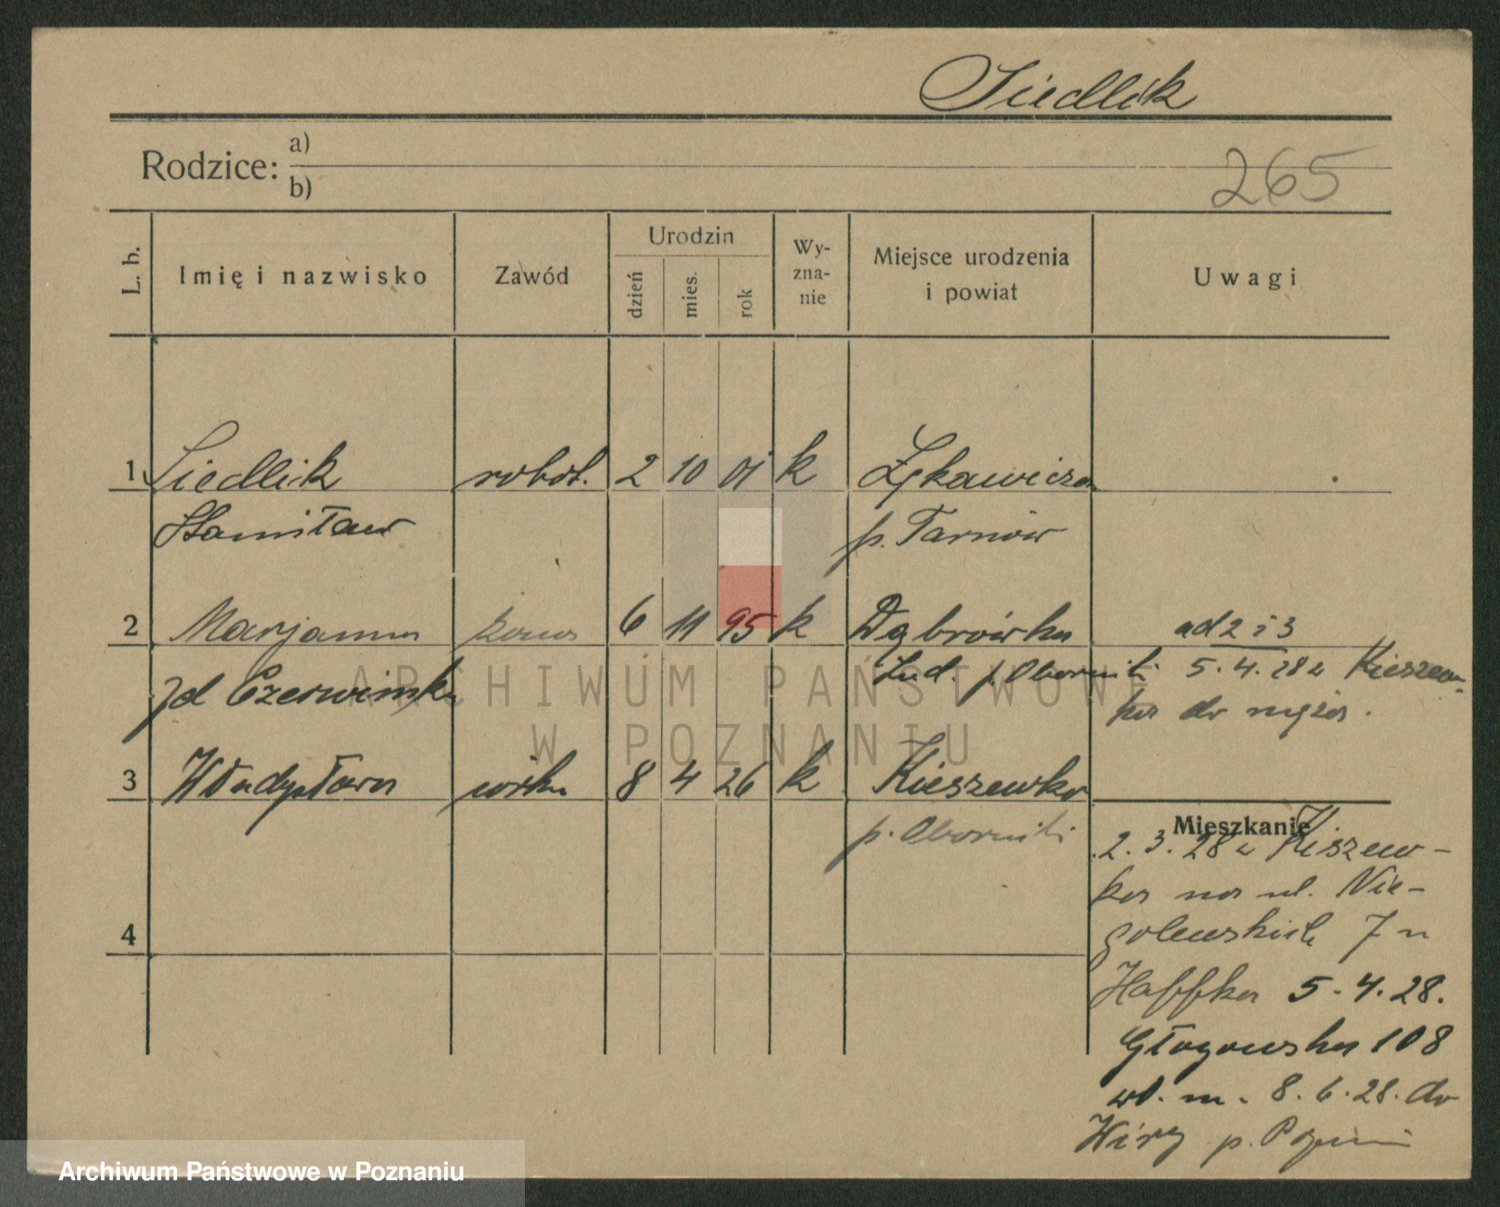 Siedlik
Rodzice: a)
b)
265
L. b.
Imię i nazwisko
Zawód
Urodzin
dzień
mies.
rok
Wy-
zna-
nie
Miejsce urodzenia
i powiat
Uwagi
1 Siedlik robot. 2 10 01 k Łękawica
Stanisław p. Tarnów
2 Marjanna żona 6 11 95 k Dąbrówka ad 2 i 3
zd Czerwińska Lud. p. Oborniki 5.4.28 z Kieszew-
ka do męża.
3 Władysława córka 8 4 26 k Kieszewko
p. Oborniki
Mieszkanie
2.3.28 z Kiszew-
ka na ul. Nie-
golewskich 7 u
Haffka 5.4.28.
Głogowska 108
wł. m. 8.6.28. do
Wiry p. Poznań
4
ARCHIWUM PAŃSTWOWE
W POZNANIU
Archiwum Państwowe w Poznaniu